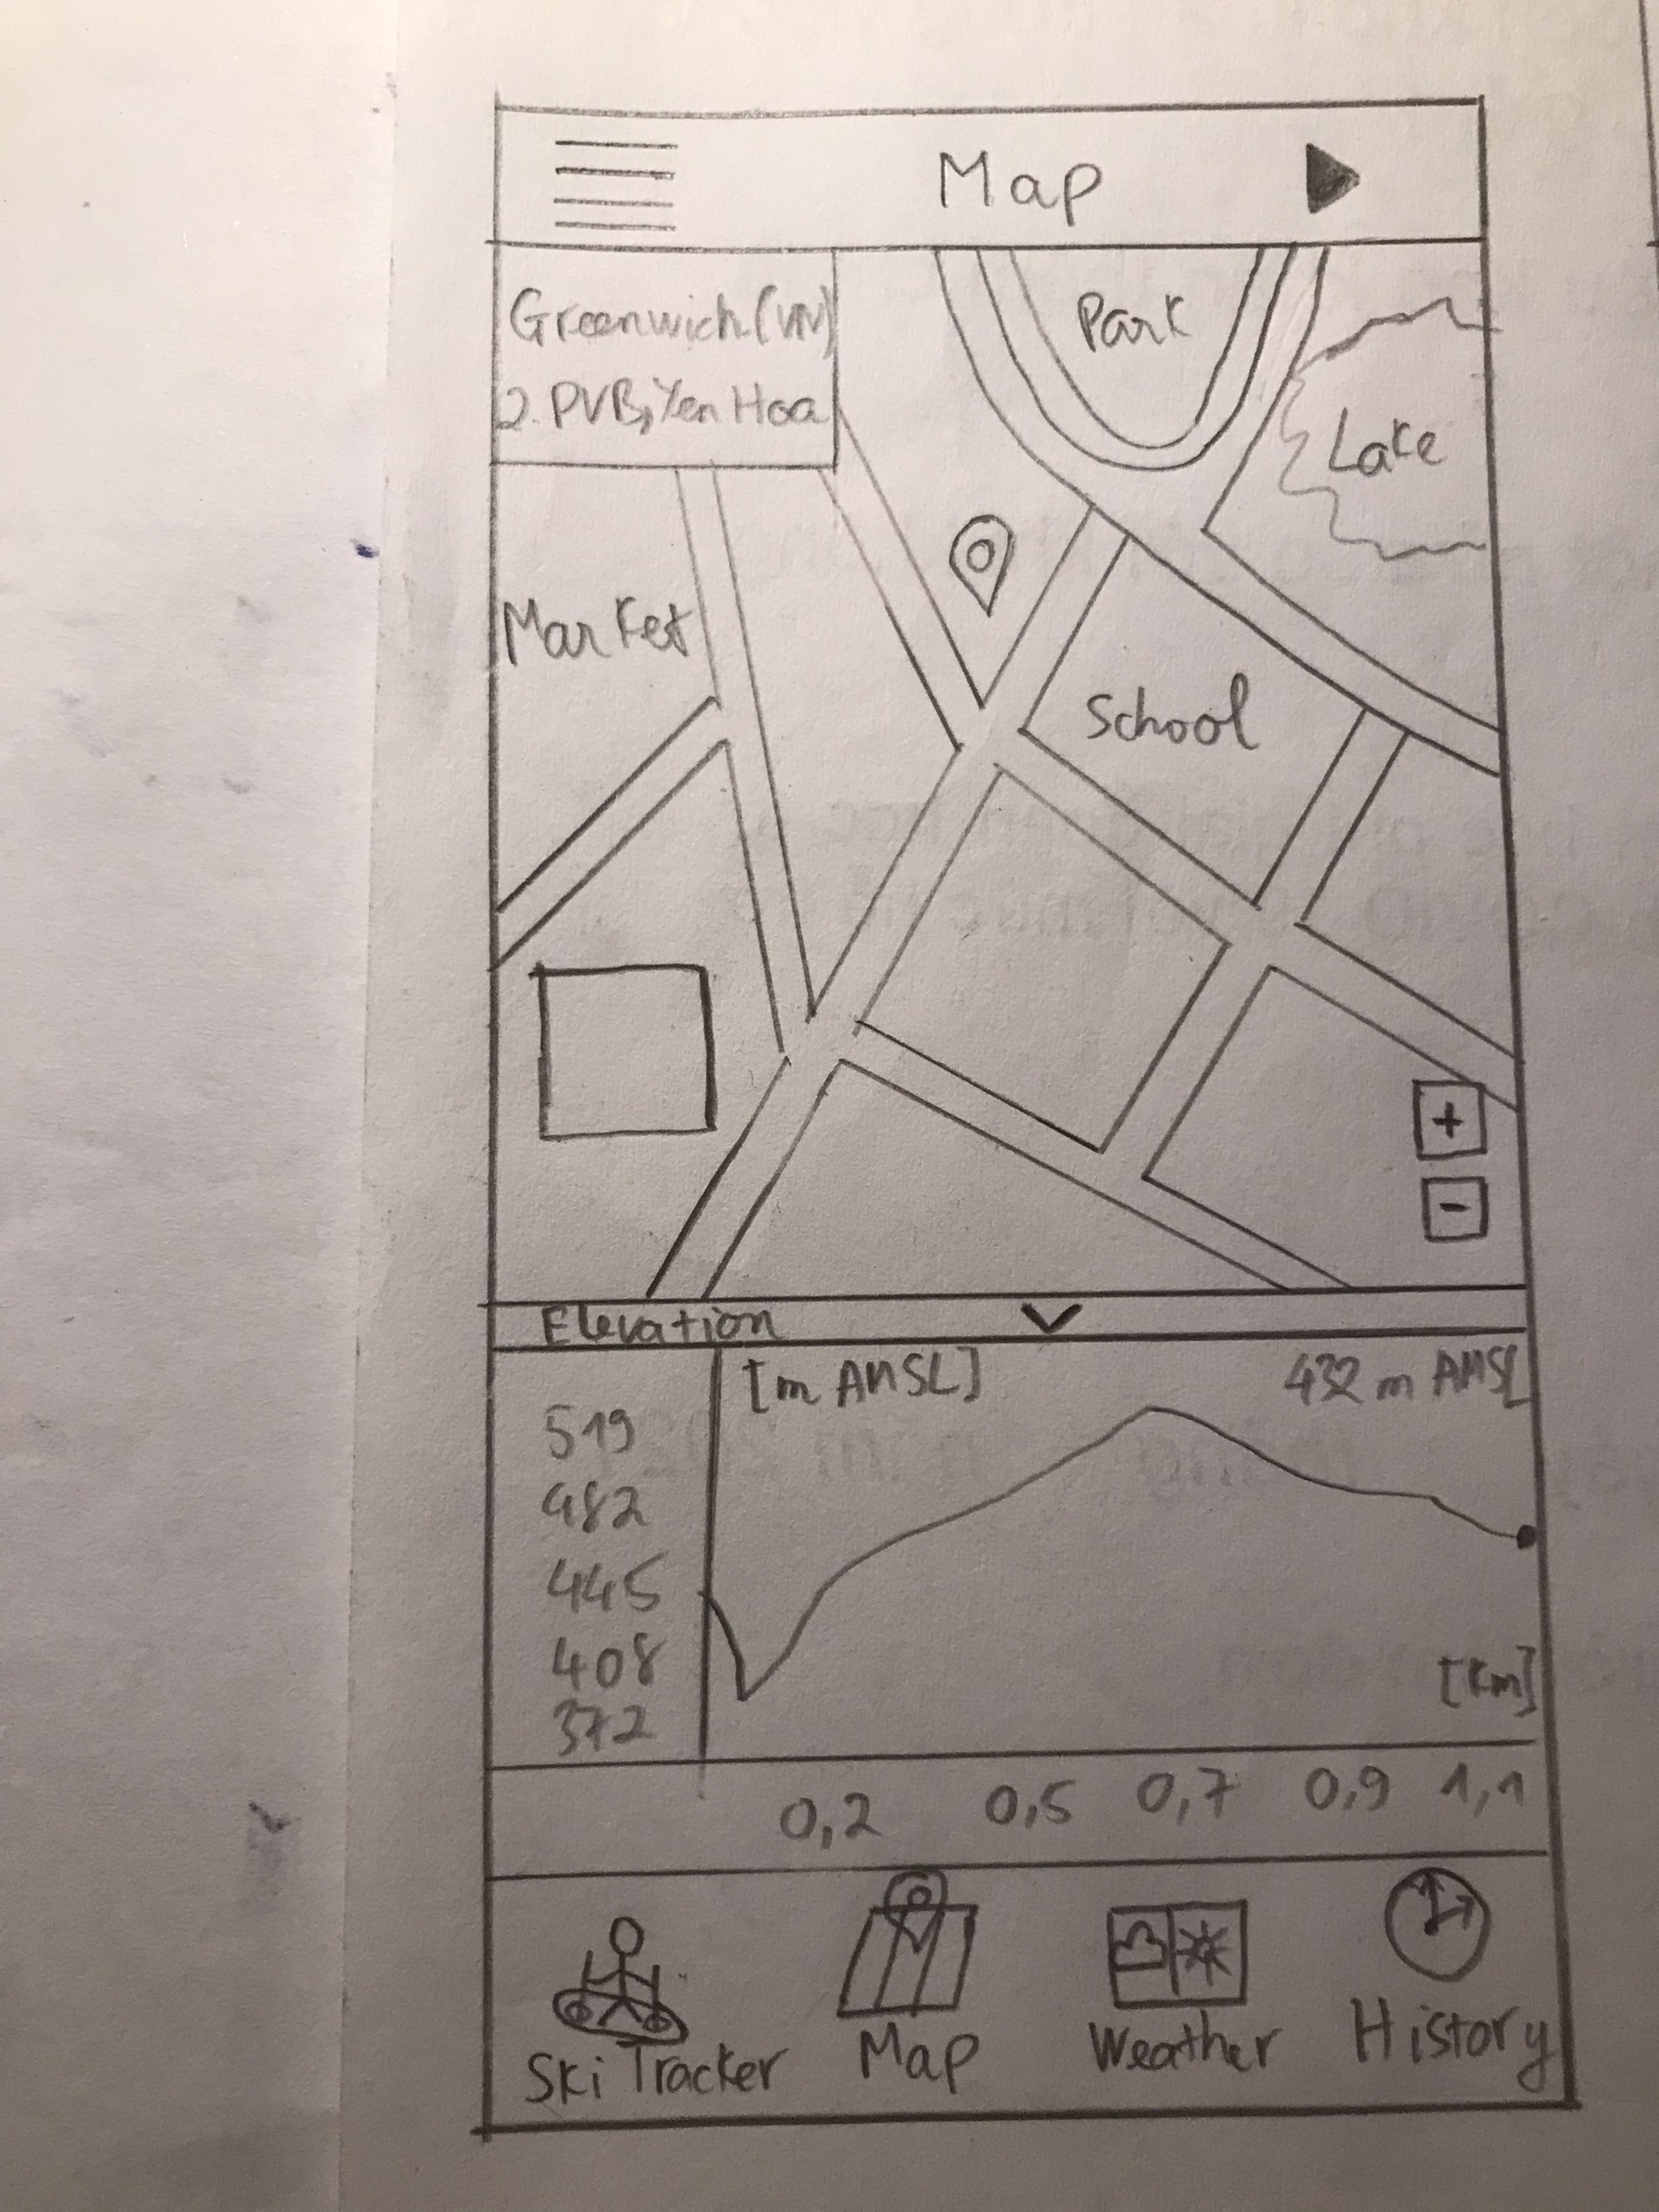 Map
Greenwich (VN)
2. PVB, Yen Hoa
Park
Lake
Market
School
+
-
Elevation
[m AMSL]
432 m AMSL
519
482
445
408
372
[Km]
0,2 0,5 0,7 0,9 1,1
Ski Tracker
Map
Weather
History